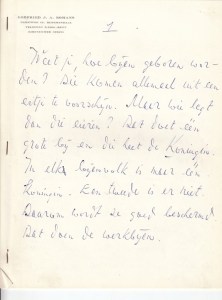 1
Weet je, hoe bijen geboren wor-
den? Die komen allemaal uit een
eitje te voorschijn. Maar wie legt
dan die eieren? Dat doet één
grote bij en die heet de Koningin.
In elk bijenvolk is maar één
Koningin. Een tweede is er niet.
Daarom wordt ze goed beschermd
Dat doen de werkbijen.